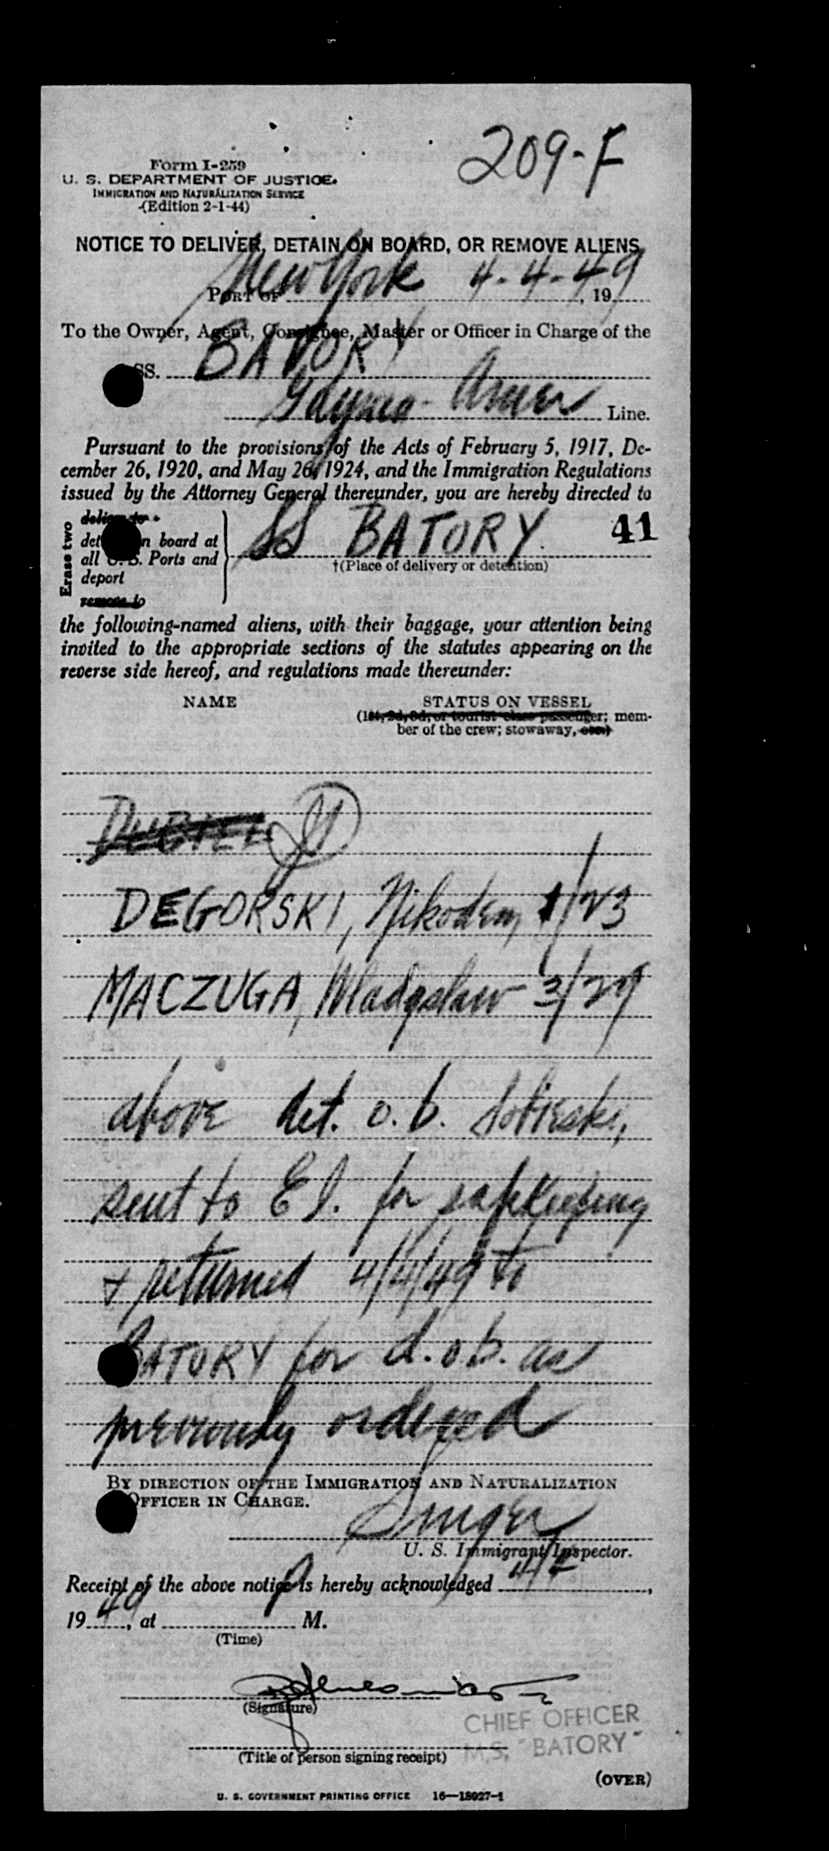 209-F
Form I-259
U. S. DEPARTMENT OF JUSTICE
IMMIGRATION AND NATURALIZATION SERVICE
(Edition 2-1-44)
NOTICE TO DELIVER, DETAIN ON BOARD, OR REMOVE ALIENS
PORT OF New York 4-4-49, 19
To the Owner, Agent, Consignee, Master or Officer in Charge of the
SS. BATORY
Gdynia-Amer Line.
Pursuant to the provisions of the Acts of February 5, 1917, De-
cember 26, 1920, and May 26, 1924, and the Immigration Regulations
issued by the Attorney General thereunder, you are hereby directed to
Erase two
deliver to
det n board at SS BATORY. 41
all U. S. Ports and †(Place of delivery or detention)
deport
remove to
the following-named aliens, with their baggage, your attention being
invited to the appropriate sections of the statutes appearing on the
reverse side hereof, and regulations made thereunder:
NAME STATUS ON VESSEL
(1st, 2d, 3d, or tourist class passenger; mem-
ber of the crew; stowaway, etc.)
DEGORSKI, Nikodem 1/23
MACZUGA, Wladyslaw 3/29
above det. o.b. Sobieski,
sent to E I. for safekeeping
& returned 4/4/49 to
BATORY for d.o.b. as
previously ordered
BY DIRECTION OF THE IMMIGRATION AND NATURALIZATION
OFFICER IN CHARGE.
Singer
U. S. Immigrant Inspector.
Receipt of the above notice is hereby acknowledged 4/4,
19 49, at M.
(Time)
(Signature)
CHIEF OFFICER
M.S. "BATORY"
(Title of person signing receipt)
(OVER)
U. S. GOVERNMENT PRINTING OFFICE 16—18027-1